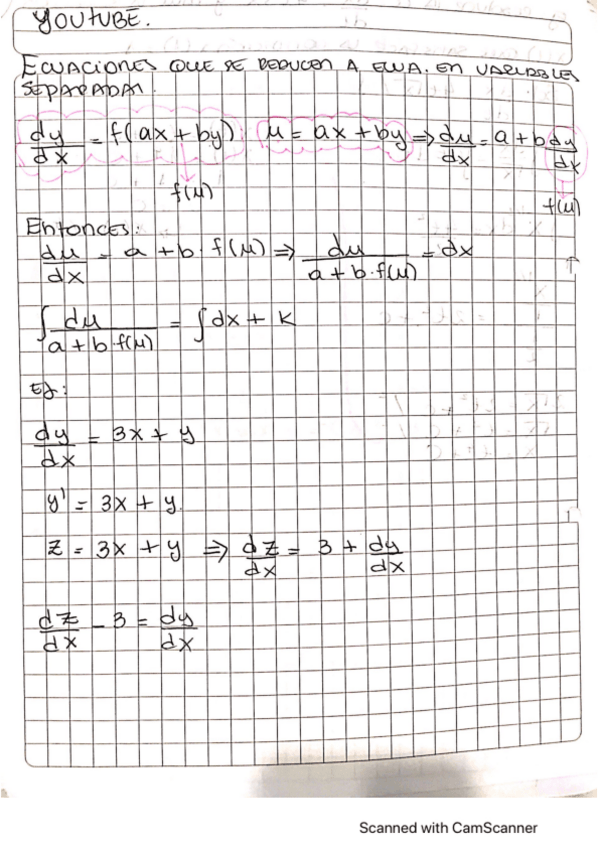 YOUTUBE.
ECUACIONES QUE SE REDUCEN A ECUA. EN VARIABLES
SEPARADAS.
dy/dx = f(ax + by) μ = ax + by ⇒ du/dx = a + b dy/dx
f(μ) f(μ)
Entonces:
du/dx = a + b · f(μ) ⇒ du/(a + b·f(μ)) = dx
∫ du/(a + b·f(μ)) = ∫ dx + K
EJ:
dy/dx = 3x + y
y' = 3x + y.
z = 3x + y ⇒ dz/dx = 3 + dy/dx
dz/dx - 3 = dy/dx
Scanned with CamScanner